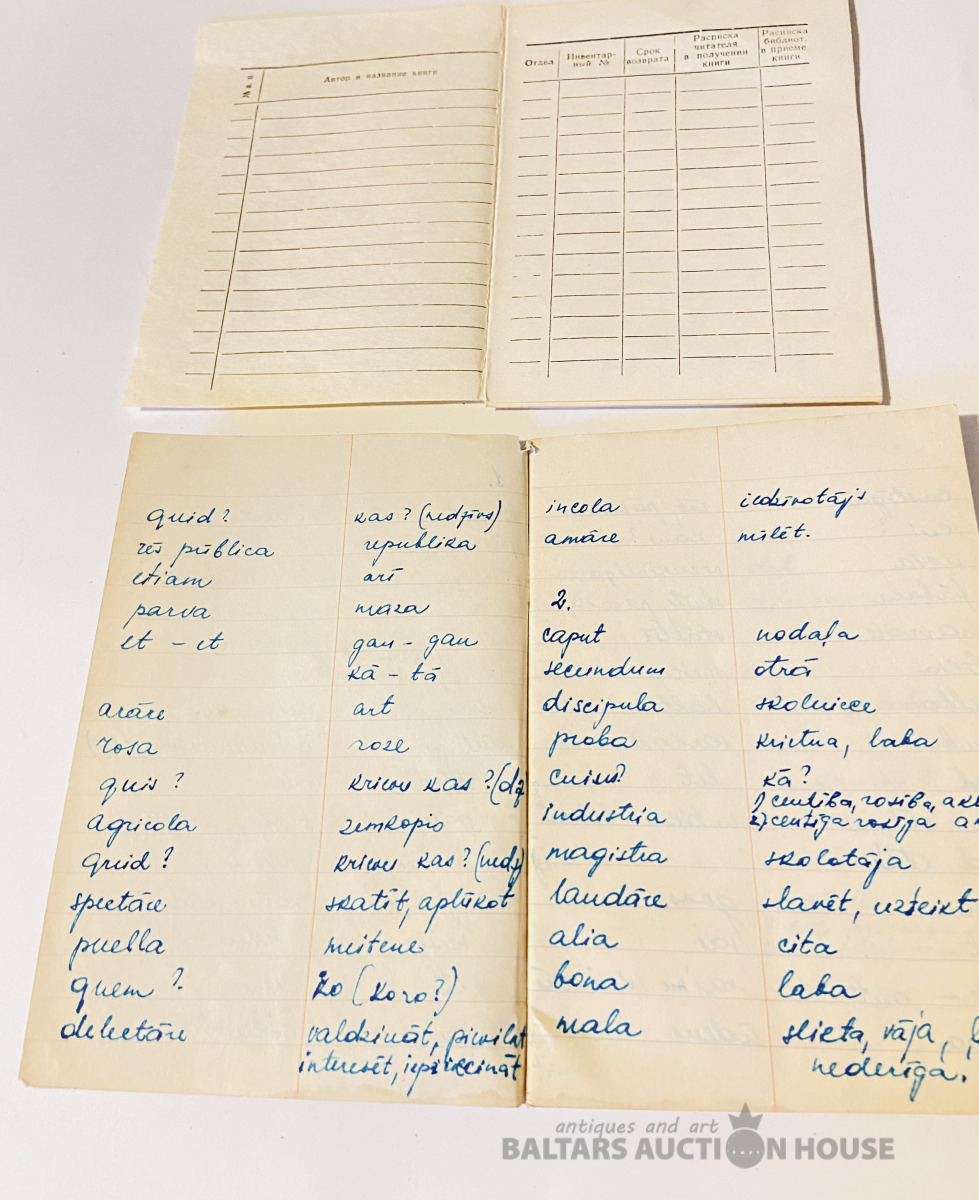 № п. п. Автор и название книги
Отдел Инвентар- ный № Срок возврата Расписка читателя в получении книги Расписка библиот. в приеме книги
quid? kas? (nedzīvs)
rēs pūblica republika
etiam arī
parva maza
et - et gan - gan
kā - tā
arāre art
rosa roze
quis? kas? (dz
agricola zemkopis
quid? kas? (nedz
spectāre skatīt, aplūkot
puella meitene
quem? ko (кого?)
delectāre valdzināt, pievilkt
interesēt, iepriecināt
incola iedzīvotājs
amāre mīlēt.
2.
caput nodaļa
secundum otrā
discipula skolniece
proba krietna, laba
cuius? kā?
industria 1) centība, rosība, ak
2) centīga rosīga a
magistra skolotāja
laudāre slavēt, uzteikt
alia cita
bona laba
mala slikta, vāja,
nederīga.
antiques and art
BALTARS AUCTION HOUSE